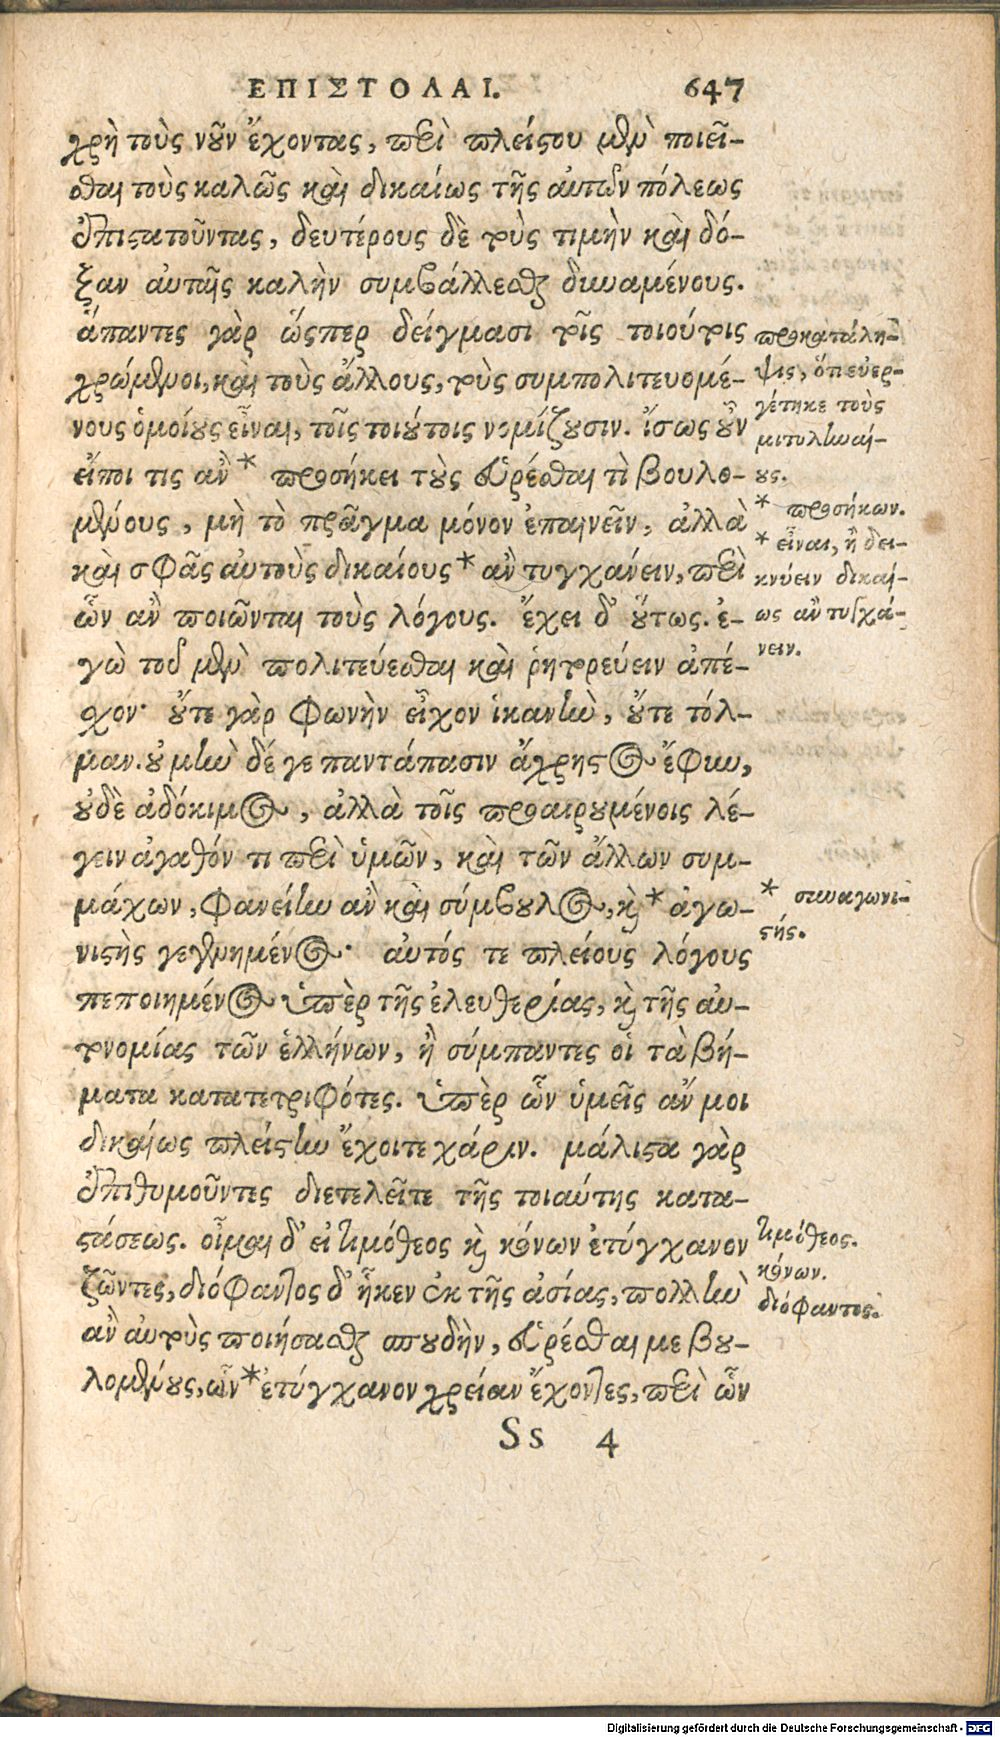 ΕΠΙΣΤΟΛΑΙ. 647
χρὴ τοὺς νῦν ἔχοντας, περὶ πλείστου μὲν ποιεῖ-
σθαι τοὺς καλῶς καὶ δικαίως τῆς αὐτῶν πόλεως
ἐπιστατοῦντας, δευτέρους δὲ τοὺς τιμὴν καὶ δό-
ξαν αὐταῖς καλὴν συμβάλλεσθαι δυναμένους.
ἅπαντες γὰρ ὥσπερ δείγμασι τοῖς τοιούτοις
χρώμενοι, καὶ τοὺς ἄλλους, τοὺς συμπολιτευομέ-
νους ὁμοίους εἶναι, τοῖς τοιούτοις νομίζουσιν. ἴσως οὖν
εἴποι τις ἂν * προσήκει τοὺς εὑρέσθαι τὶ βουλο-
μένους, μὴ τὸ πρᾶγμα μόνον ἐπαινεῖν, ἀλλὰ
καὶ σφᾶς αὐτοὺς δικαίους * ἂν τυγχάνειν, περὶ
ὧν ἂν ποιῶνται τοὺς λόγους. ἔχει δ' οὕτως. ἐ-
γὼ τοῦ μὲν πολιτεύεσθαι καὶ ῥητορεύειν ἀπέ-
χον· οὔτε γὰρ φωνὴν εἶχον ἱκανὴν, οὔτε τόλ-
μαν. οὐ μὴν δέ γε παντάπασιν ἄχρηστος ἔφυν,
οὐδὲ ἀδόκιμος, ἀλλὰ τοῖς προαιρουμένοις λέ-
γειν ἀγαθόν τι περὶ ὑμῶν, καὶ τῶν ἄλλων συμ-
μάχων, φανείην ἂν καὶ σύμβουλος, καὶ * ἀγω-
νιστὴς γεγενημένος· αὐτός τε πλείους λόγους
πεποιημένος ὑπὲρ τῆς ἐλευθερίας, καὶ τῆς αὐ-
τονομίας τῶν ἑλλήνων, ἢ σύμπαντες οἱ τὰ βή-
ματα κατατετριφότες. ὑπὲρ ὧν ὑμεῖς ἄν μοι
δικαίως πλείστην ἔχοιτε χάριν. μάλιστα γὰρ
ἐπιθυμοῦντες διετελεῖτε τῆς τοιαύτης κατα-
στάσεως. οἶμαι δ' εἰ τιμόθεος καὶ κόνων ἐτύγχανον
ζῶντες, διόφαντος δ' ἧκεν ἐκ τῆς ἀσίας, πολλὴν
ἂν αὐτοὺς ποιήσασθαι σπουδὴν, εὑρέσθαι με βου-
λομένους, ὧν * ἐτύγχανον χρείαν ἔχοντες, περὶ ὧν
Ss 4
προκατάλη-
ψις, ὅτι εὐερ-
γέτηκε τοὺς
μιτυληναί-
ους.
* προσήκων.
* εἶναι, ἢ δει-
κνύειν δικαί-
ως ἂν τυγχά-
νειν.
* συναγωνι-
στής.
τιμόθεος.
κόνων.
διόφαντος.
Digitalisierung gefördert durch die Deutsche Forschungsgemeinschaft - DFG